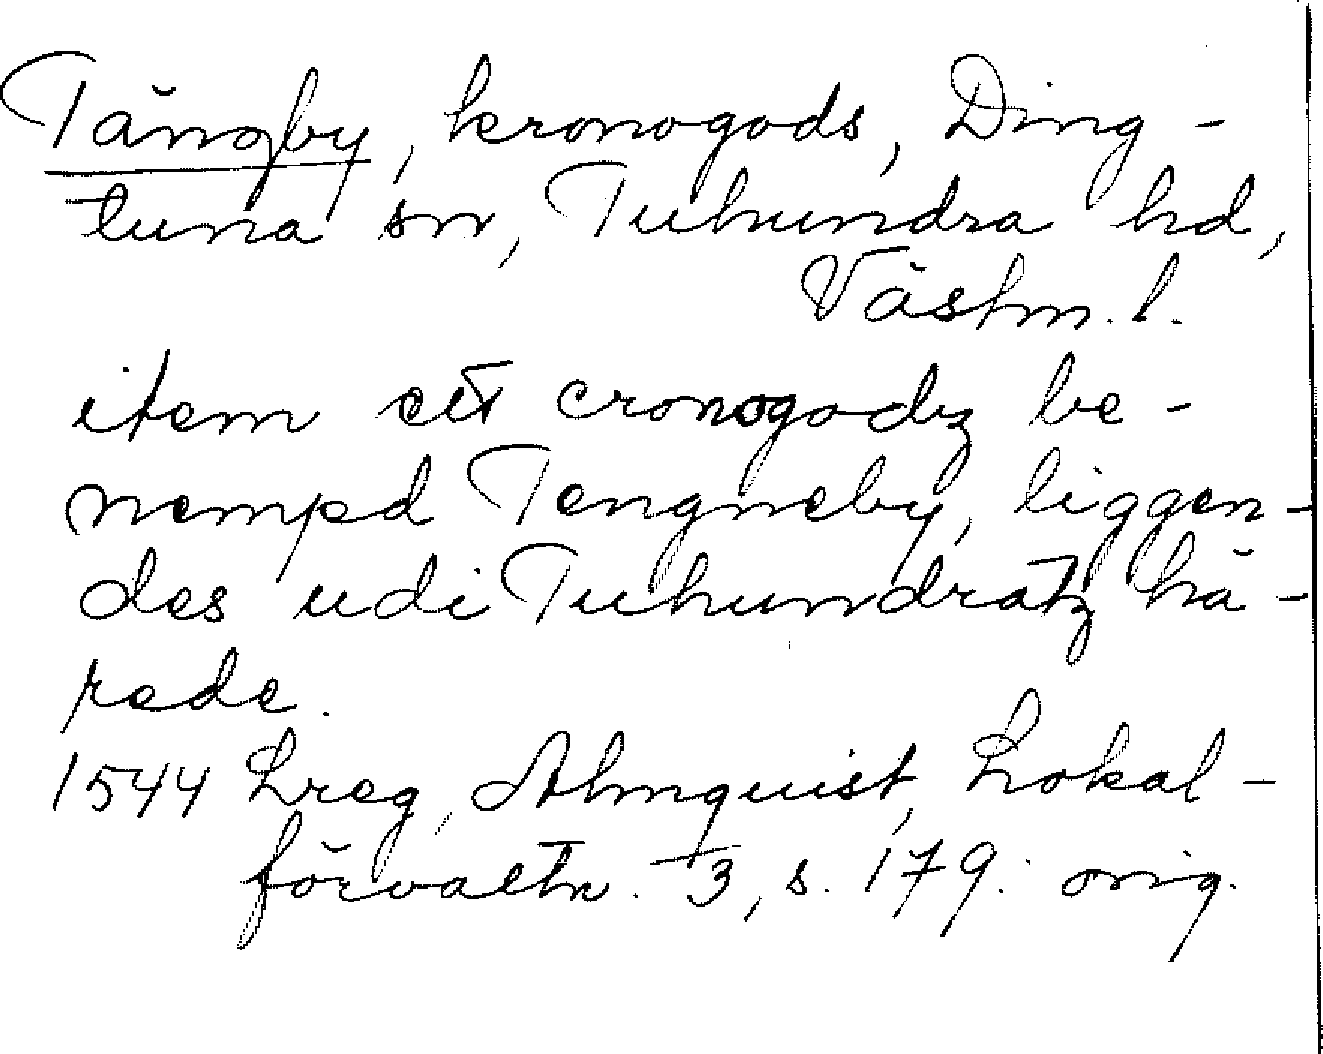 Tängby, kronogods, Ding-
tuna sn, Tuhundra hd,
Västm. l.
item ett cronogodz be-
nempd Tengneby, liggen-
des udi Tuhundratz hä-
rede.
1544 Lreg, Almquist, Lokal-
förvaltn. 3, s. 179. orig.